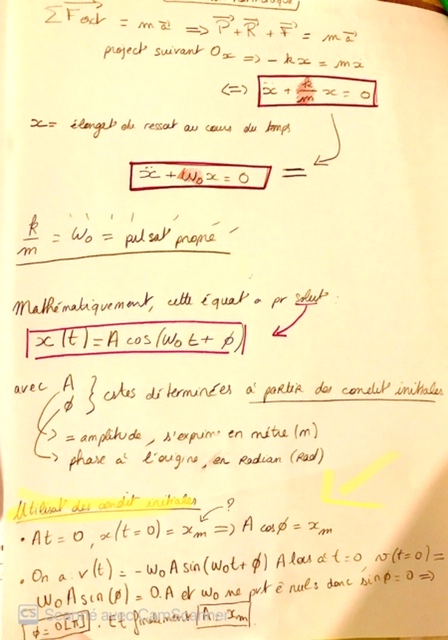 ΣF⃗ext = m a⃗ => P⃗ + R⃗ + F⃗ = m a⃗
project suivant Ox => - kx = mx
<=> ẍ + k/m x = 0
x = élongat du ressort au cours du temps
ẍ + ω₀x = 0 =
k/m = ω₀ = pulsat propre
Mathématiquement, cette équat a pr solut :
x(t) = A cos(ω₀t + φ)
avec A
φ } cstes déterminées à partir des condit initiales
= amplitude, s'exprime en mètre (m)
phase à l'origine, en Radian (Rad)
Utilisat des condit initiales ?
• At = 0, x(t=0) = xm => A cosφ = xm
• On a : v(t) = -ω₀A sin(ω₀t + φ) A lors à t=0, v(t=0) =
ω₀A sin(φ) = 0. A et ω₀ ne pvt ê nuls donc sinφ = 0 =>
φ = 0[π]. Et finalement A = xm.
CS Scanné avec CamScanner